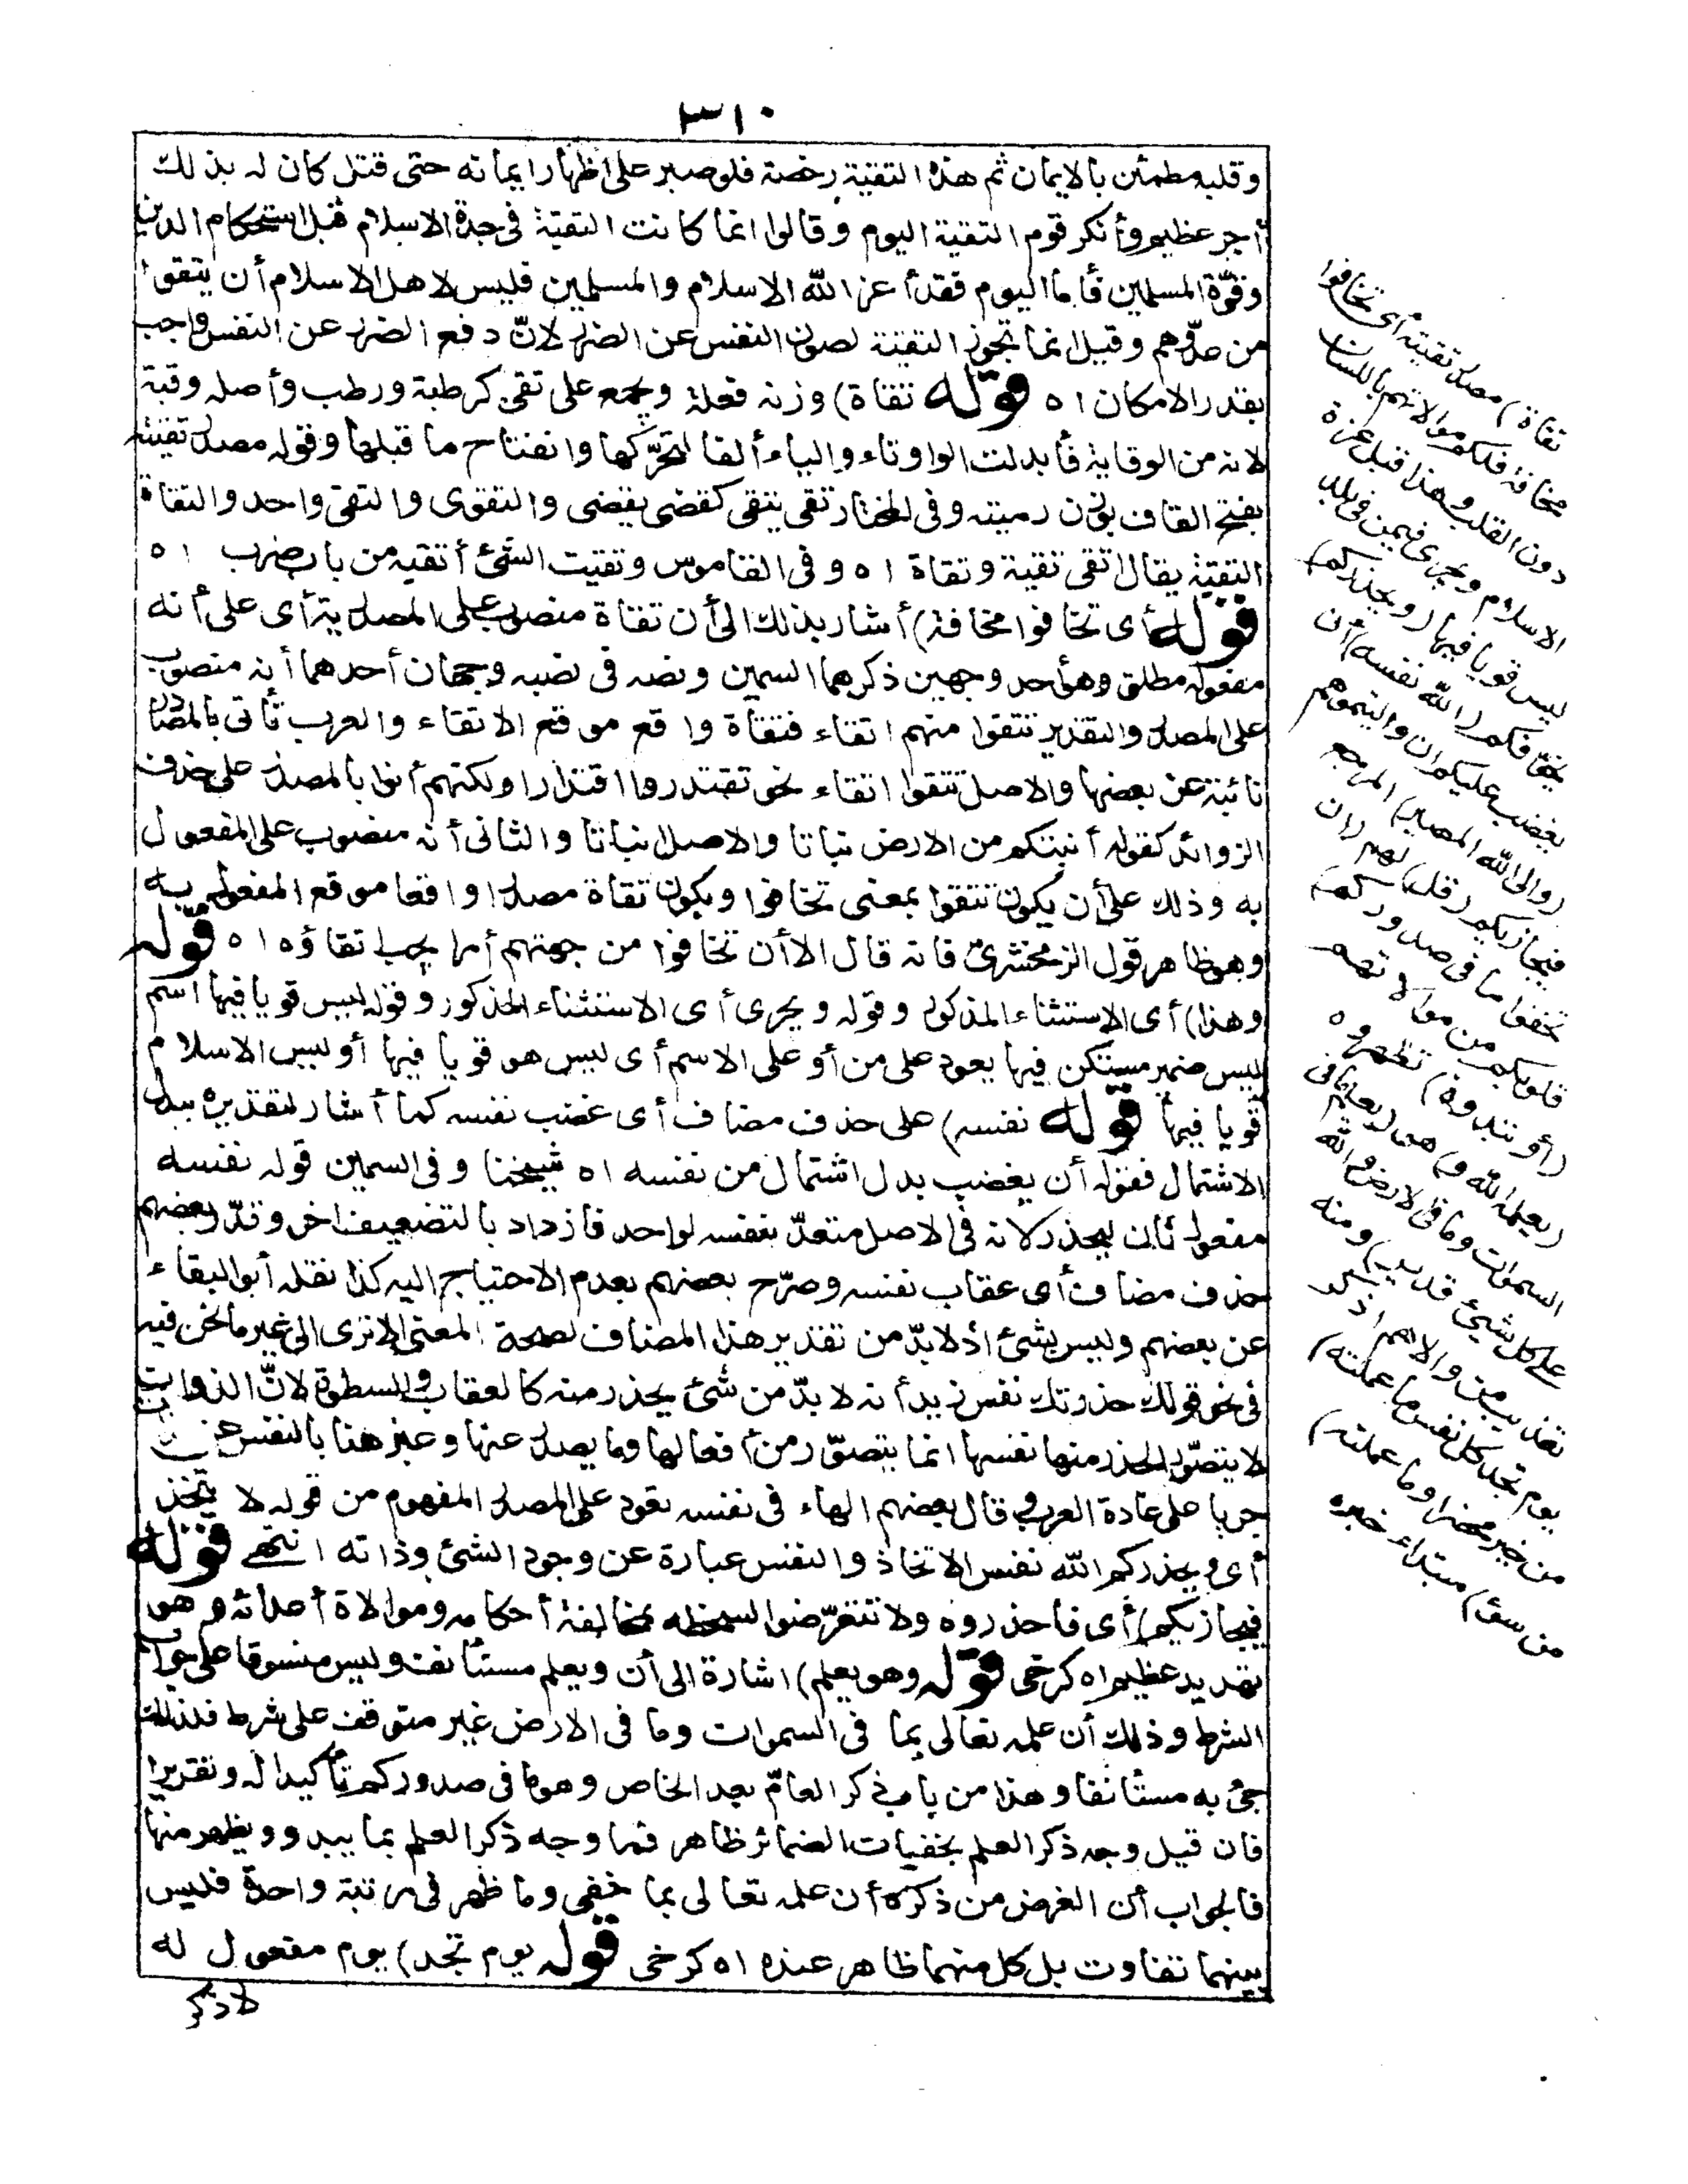 ٣١٠
وقلبه مطمئن بالايمان ثم هذه التقية رخصة فلو صبر على اظهار ايمانه حتى قتل كان له بذلك
أجر عظيم وأنكر قوم التقية اليوم وقالوا انما كانت التقية فى جدة الاسلام قبل استحكام الدين
وقوّة المسلمين فأما اليوم فقد أعز الله الاسلام والمسلمين فليس لاهل الاسلام أن يتقوا
من عدوّهم وقيل انما تجوز التقية لصون النفس عن الضرر لانّ دفع الضرر عن النفس واجب
بقدر الامكان اه قوله تقاة) وزنه فعلة ويجمع على تقى كرطبة ورطب وأصله وقية
لانه من الوقاية فأبدلت الواو تاء والياء ألفا لتحرّكها وانفتاح ما قبلها وقوله مصدر تقيته
بفتح القاف بوزن رميته وفى المختار تقى يتقى كقضى يقضى والتقوى والتقى واحد والتقاة
التقية يقال تقى تقية وتقاة اه وفى القاموس وتقيت الشئ أتقيه من باب ضرب اه
قوله أى تخافوا مخافة) أشار بذلك الى أن تقاة منصوب على المصدرية أى على أنه
مفعول مطلق وهو أحد وجهين ذكرهما السمين ونصه فى نصبه وجهان أحدهما أنه منصوب
على المصدر والتقدير تتقوا منهم اتقاء فتقاة واقع موقع الاتقاء والعرب تأتى بالمصادر
نائبة عن بعضها والاصل تتقوا اتقاء نحو تقتدروا اقتدارا ولكنهم أتوا بالمصدر على حذف
الزوائد كقوله أنبتكم من الارض نباتا والاصل نباتا والثانى أنه منصوب على المفعول
به وذلك على أن يكون تتقوا بمعنى تخافوا ويكون تقاة مصدرا واقعا موقع المفعول به
وهو ظاهر قول الزمخشرى فانه قال الا أن تخافوا من جهتهم أمرا يجب اتقاؤه اه قوله
وهذا) أى الاستثناء المذكور وقوله ويجرى أى الاستثناء المذكور وقوله ليس قويا فيها اسم
ليس ضمير مستكن فيها يعود على من أو على الاسم أى ليس هو قويا فيها أو ليس الاسلام
قويا فيها قوله نفسه) على حذف مضاف أى غضب نفسه كما أشار لتقديره ببدل
الاشتمال فقوله أن يغضب بدل اشتمال من نفسه اه شيخنا وفى السمين قوله نفسه
مفعول ثان ليحذر لانه فى الاصل متعدّ بنفسه لواحد فازداد بالتضعيف اخر وقدّر بعضهم
حذف مضاف أى عقاب نفسه وصرّح بعضهم بعدم الاحتياج اليه كذا نقله أبو البقاء
عن بعضهم وليس بشئ اذ لا بدّ من تقدير هذا المضاف لصحة المعنى الا ترى الى غير ما نحن فيه
فى نحو قولك حذرتك نفس زيد أنه لا بدّ من شئ يحذر منه كالعقاب والسطوة لانّ الذوات
لا يتصوّر الحذر منها نفسها انما يتصوّر من أفعالها وما يصدر عنها وعبر هنا بالنفس عن
جريا على عادة العرب وقال بعضهم الهاء فى نفسه تعود على المصدر المفهوم من قوله لا يتخذ
أى ويحذركم الله نفس الاتخاذ والنفس عبارة عن وجود الشئ وذاته انتهى قوله
فيجازيكم) أى فاحذروه ولا تتعرّضوا لسخطه بمخالفة أحكامه وموالاة أعدائه وهو
تهديد عظيم اه كرخى قوله وهو يعلم) اشارة الى أن ويعلم مستأنف وليس منسوقا على جواب
الشرط وذلك أن علمه تعالى بما فى السموات وما فى الارض غير متوقف على شرط فلذلك
جئ به مستأنفا وهذا من باب ذكر العامّ بعد الخاص وهو ما فى صدوركم تأكيدا له وتقريرا
فان قيل وجه ذكر العلم بخفيات الضمائر ظاهر فما وجه ذكر العلم بما يبدو ويظهر منها
فالجواب أن الغرض من ذكره أن علمه تعالى بما خفى وما ظهر فى مرتبة واحدة فليس
بينهما تفاوت بل كل منهما ظاهر عنده اه كرخى قوله يوم تجد) يوم مفعول له
لاذكر
تقاة) مصدر تقيته أى تخافوا
مخافة فلكم موالاتهم باللسان
دون القلب وهذا قبل عزة
الاسلام ويجرى فيمن فى بلد
ليس قويا فيها (ويحذركم)
يخوّفكم (الله نفسه) أن
يغضب عليكم ان واليتموهم
(والى الله المصير) المرجع
فيجازيكم (قل) لهم (ان
تخفوا ما فى صدوركم)
قلوبكم من موالاتهم
(أو تبدوه) تظهروه
(يعلمه الله و) هو (يعلم ما فى
السموات وما فى الارض والله
على كل شئ قدير) ومنه
تعذيب من والاهم اذكر
يوم تجد كل نفس ما عملت)ه
من خير محضرا وما عملت)ه
من سوء) مبتداء خبره